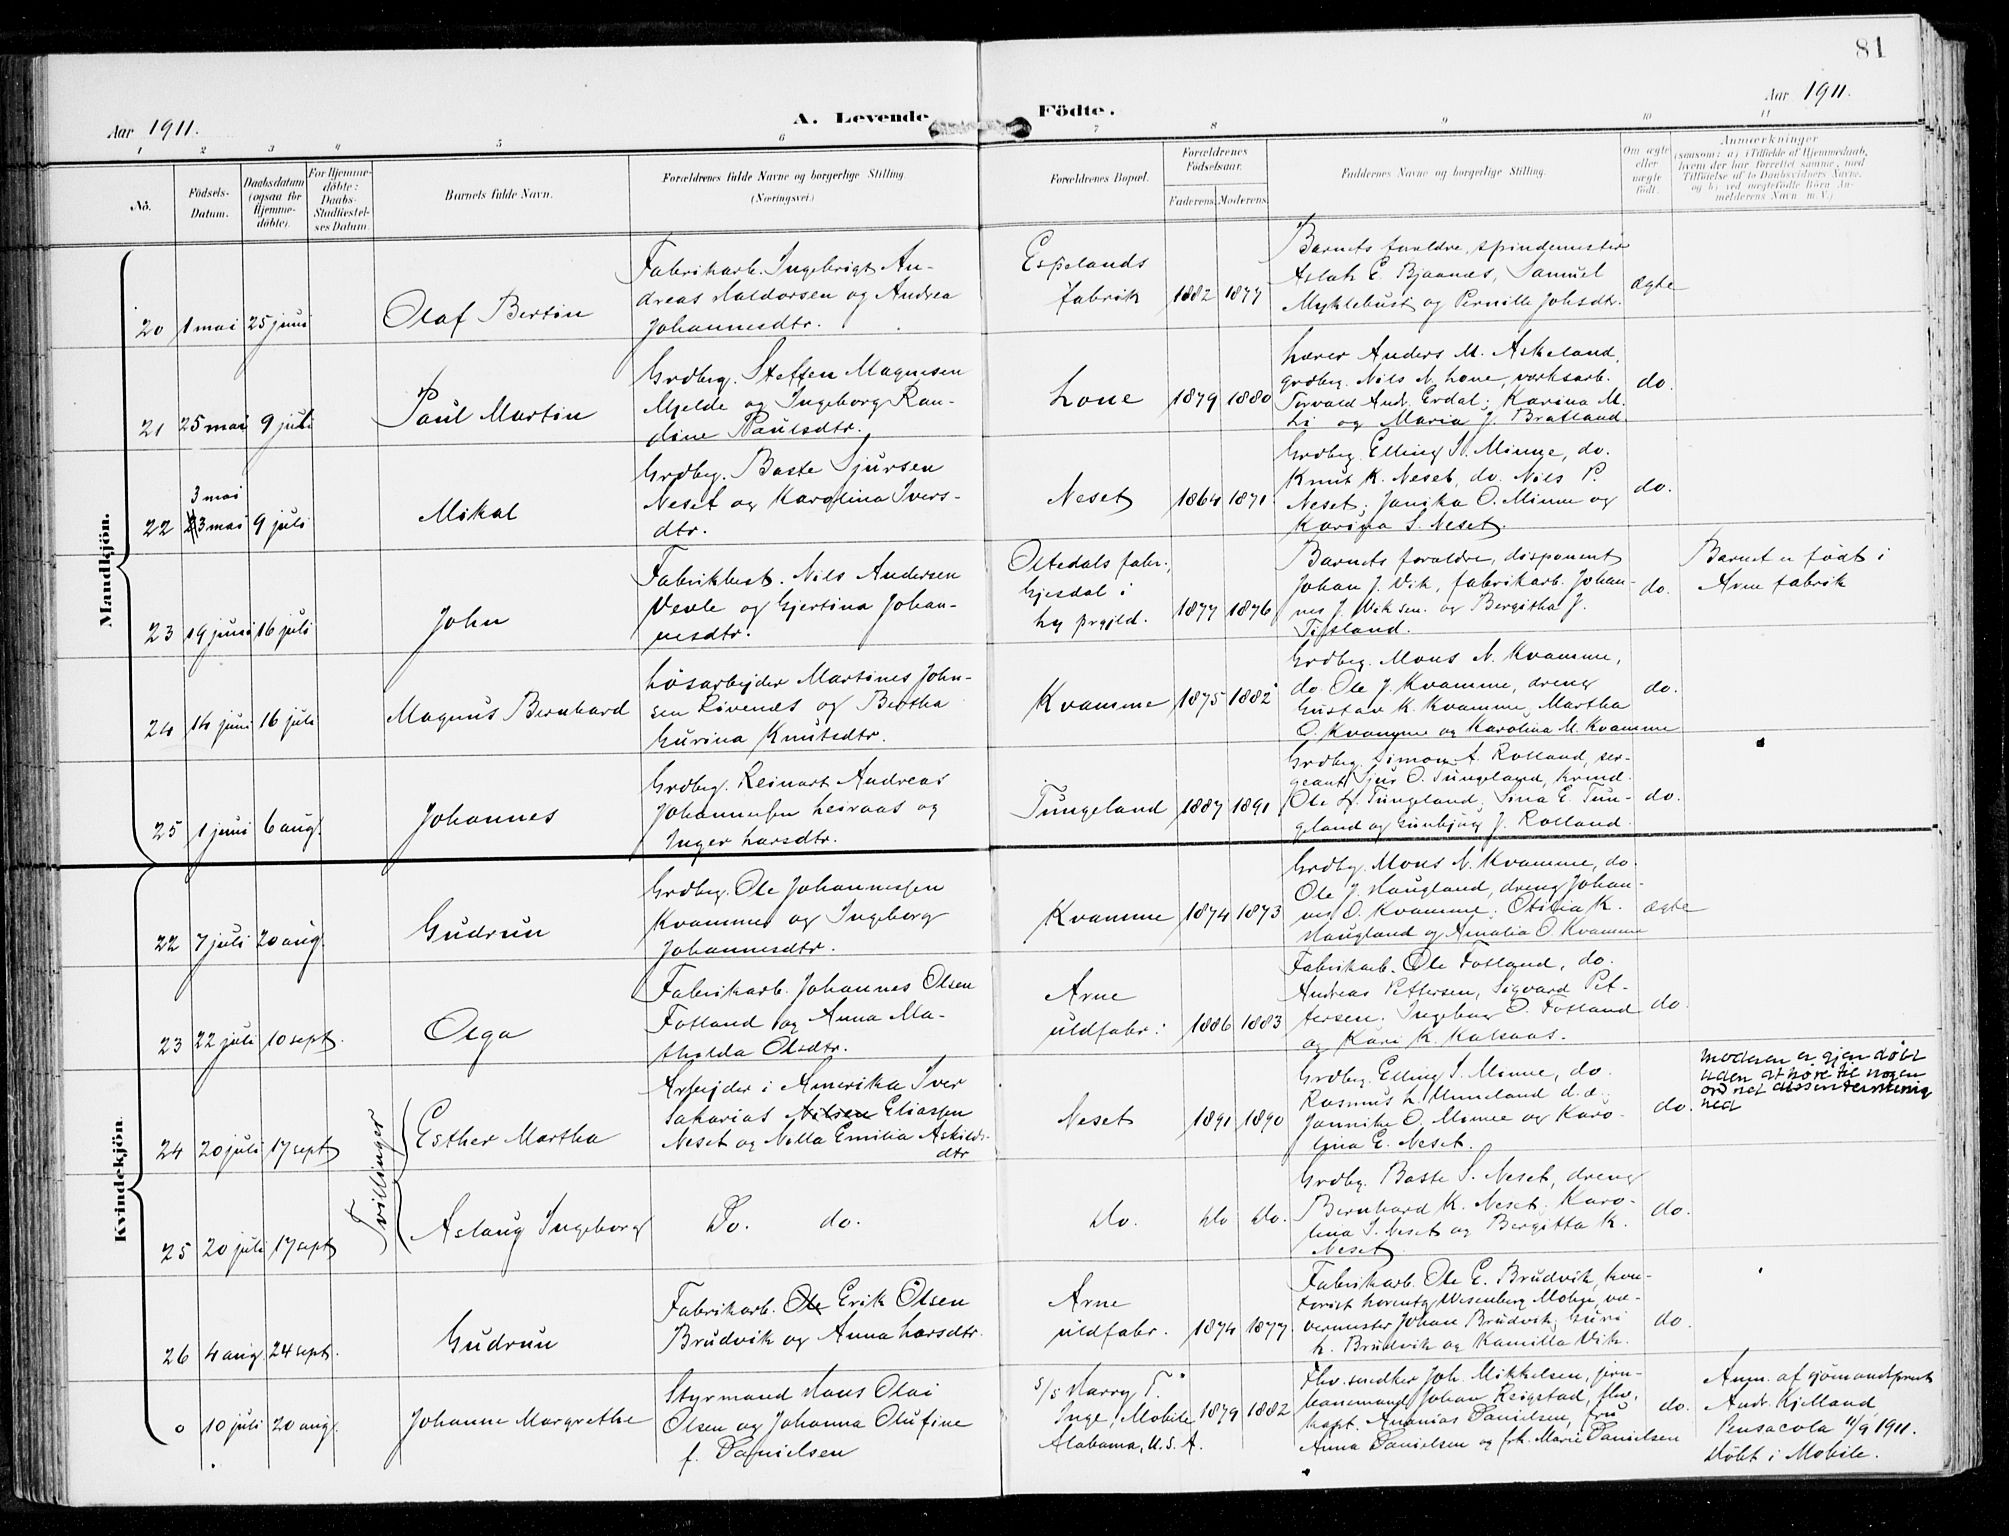 81
Aar 1911.
A. Levende
Födte.
Aar 1911.
1 2 3 4 5 6 7 8 9 10 11
No.
Födsels-
Datum.
Daabsdatum
(ogsaa for
Hjemme-
döbte).
For Hjemme-
döbte:
Daabs-
Stadfæstel-
ses Datum.
Barnets fulde Navn.
Forældrenes fulde Navne og borgerlige Stilling.
(Næringsvei.)
Forældrenes Bopæl.
Forældrenes
Födselsaar.
Faderens.
Moderens.
Faddernes Navne og borgerlige Stilling.
Om ægte
eller
uægte
födt.
Anmærkninger
(saasom: a) i Tilfælde af Hjemmedaab,
hvem der har forrettet samme, med
Tilföielse af to Daabsvidners Navne,
og b) ved uægtefödte Börn An-
melderens Navn m. V.)
Mandkjön.
20 1 mai 25 juni
Olaf Bertin
Fabrikarb. Ingebrigt An-
dreas Haldorsen og Andrea
Johannesdtr.
Espelands
fabrik
1882 1877
Barnets foreldre, spindemester
Aslak E. Bjaanes, Samuel
Myklebust og Pernille Johsdtr.
ægte
21 25 mai 9 juli
Paul Martin
Grdbrg. Steffen Magnesen
Mjelde og Ingeborg Ran-
dine Paulsdtr.
Lone
1879 1880
Lærer Anders M. Askeland,
grdbrg. Nils N. Lone, verksarb.
Torvald Andr. Erdal; Karina M.
Li og Maria J. Bratland
do.
22 3 mai
3 mai 9 juli
Mikal
Grdbrg. Baste Sjursen
Neset og Karolina Ivers-
dtr.
Neset
1864 1871
Grdbrg. Elling S. Minne, do.
Knut K. Neset, do. Nils P.
Neset; Janika O. Minne og
Karina S. Neset.
do.
23 19 juni 16 juli
John
Fabrikbest. Nils Andersen
Vevle og Gjertina Johan-
nesdtr.
Oltedals fabr.,
Gjesdal i
Ly prgjld.
1877 1876
Barnets foreldre, disponent
Johan J. Vik, fabrikarb. Johan-
nes J. Viksen og Bergitha J.
Tifsland.
do.
Barnet er født i
Arne fabrik
24 14 juni 16 juli
Magnus Bernhard
Løsarbejder Martines John-
sen Røvenes og Bertha
Gurina Knutsdtr.
Kvamme
1875 1882
Grdbrg. Mons N. Kvamme,
do. Ole J. Kvamme, dreng
Gustav K. Kvamme, Martha
O. Kvamme og Karolina M. Kvamme
do.
25 1 juni 6 aug.
Johannes
Grdbrg. Reinart Andreas
Johannessen Leiraas og
Inger Larsdtr.
Tungeland
1887 1891
Grdbrg. Simon A. Rolland, ser-
geant Sjur O. Tungeland,
Ole Tungeland; Sina E. Tun-
geland og Gunbjørg J. Rolland.
do.
Kvindekjön.
22 7 juli 20 aug.
Gudrun
Grdbrg. Ole Johannessen
Kvamme og Ingeborg
Johannesdtr.
Kvamme
1874 1873
Grdbrg. Mons N. Kvamme, do.
Ole J. Haugland, dreng Johan-
nes O. Kvamme; Otilia K.
Haugland og Amalia O. Kvamme
ægte
23 22 juli 10 sept.
Olga
Fabrikarb. Johannes Olsen
Fotland og Anna Ma-
thilda Olsdtr.
Arne
uldfabr.
1886 1883
Fabrikarb. Ole Fotland, do.
Andreas Pettersen, Sigvard Pet-
tersen. Ingeborg O. Fotland
og Kari K. Kalsaas.
do.
Tvillinger
24 20 juli 17 sept
Esther Martha
Arbejder i Amerika Iver
Sakarias Nilsen Eliassen
Neset og Nella Emilia Askilds-
dtr
Neset
1891 1890
Grdbrg. Elling S. Minne, do.
Rasmus L. Unneland d.æ;
Jannike O. Minne og Karo-
lina E. Neset.
do.
Moderen er gjendøbt
uden at høre til nogen
ordnet dissentermenig
hed
25 20 juli 17 sept
Aslaug Ingeborg
Do. do.
Do.
Do Do.
Grdbrg. Baste S. Neset, dreng
Bernhard K. Neset; Karo-
lina I. Neset og Bergitta K.
Neset.
do.
26 4 aug. 24 sept.
Gudrun
Fabrikarb. Ole Erik Olsen
Brudvik og Anna Larsdtr.
Arne
uldfabr.
1874 1877.
Fabrikarb. Ole E. Brudvik, kon-
torist Lorentz Wesenberg Mohge, væ-
vermester Johan Brudvik; Guri
L. Brudvik og Kamilla Vik.
do.
0 10 juli 20 aug.
Johanne Margrethe
Styrmand Hans Olai
Olsen og Johanna Olufine
f. Danielsen
s/s Harry T.
Inge, Mobile
Alabama, U.S.A.
1879 1882
Fhv. smedker Joh. Mikkelsen, jern-
banemand Johan Reigstad, fhv.
kapt. Ananias Danielsen, Fru
Anna Danielsen og frk. Marie Danielsen
do.
Anm. af sjømandsprest
Andr. Kjelland,
Pensacola 11/9 1911.
Døbt i Mobile.